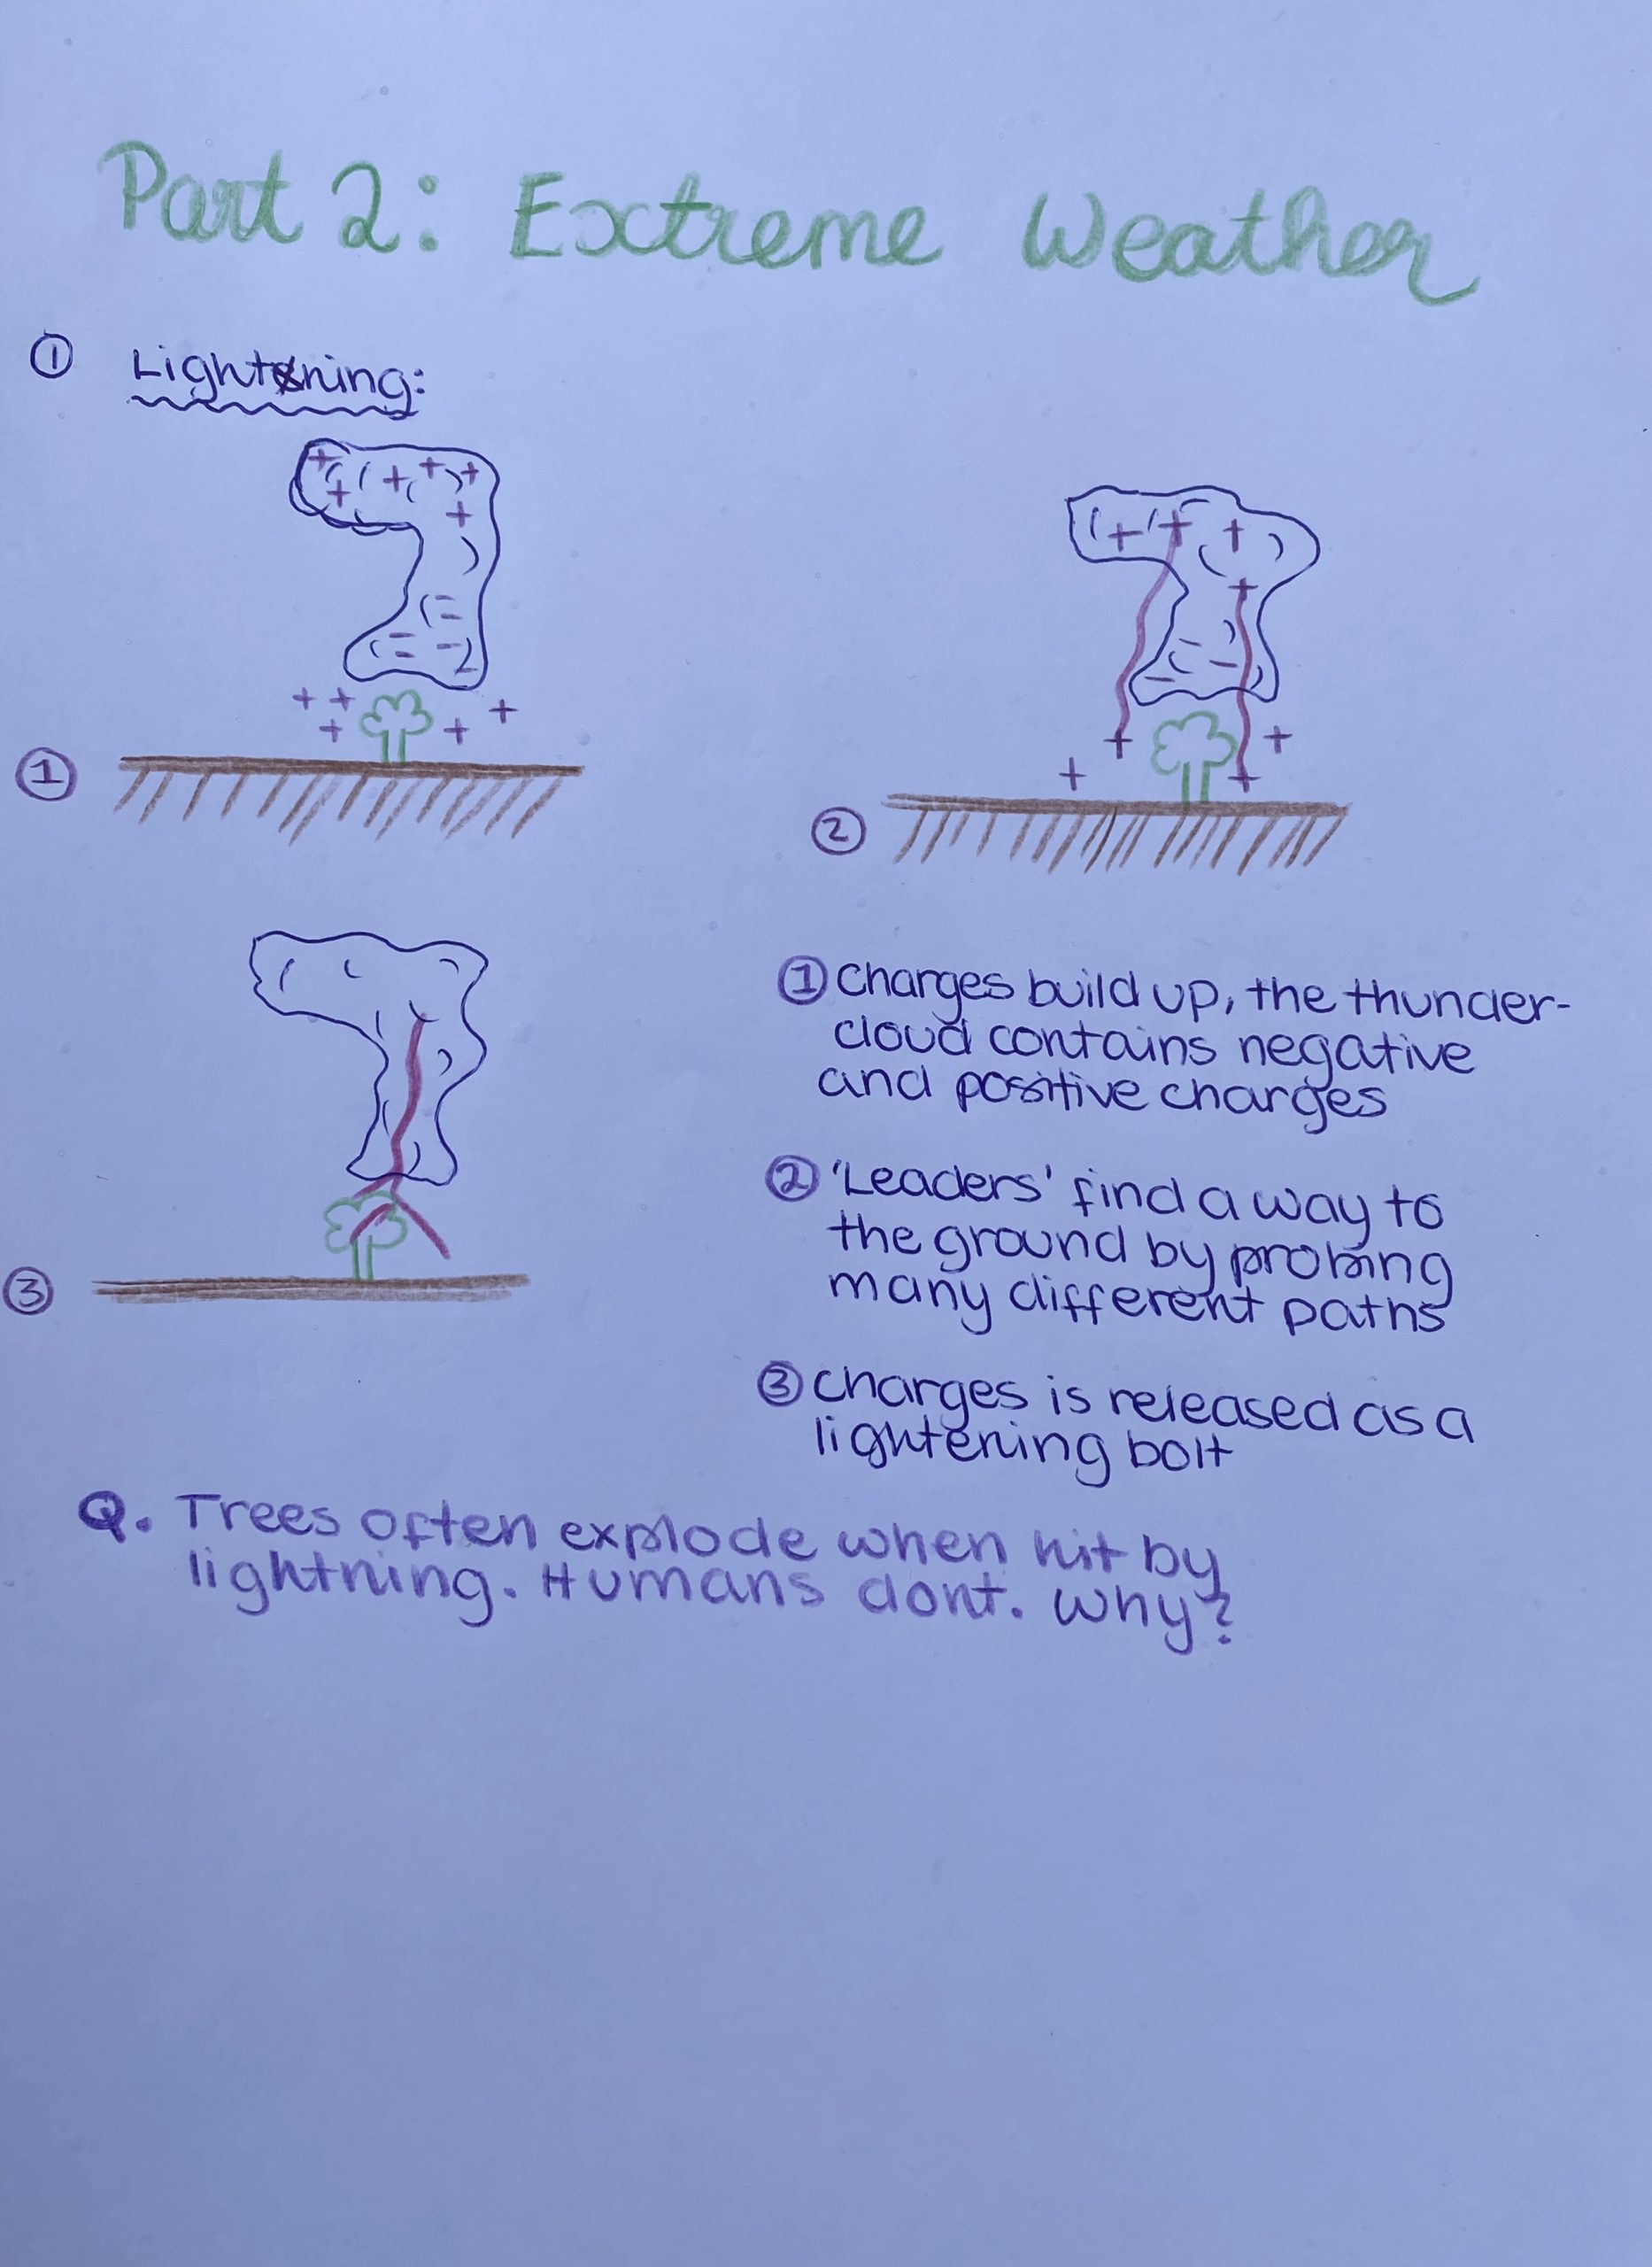 Part 2: Extreme Weather
① Lightning:
①
②
③
① Charges build up, the thunder-
cloud contains negative
and positive charges
② 'Leaders' find a way to
the ground by probing
many different paths
③ Charges is released as a
lightening bolt
Q. Trees often explode when hit by
lightning. Humans dont. Why?